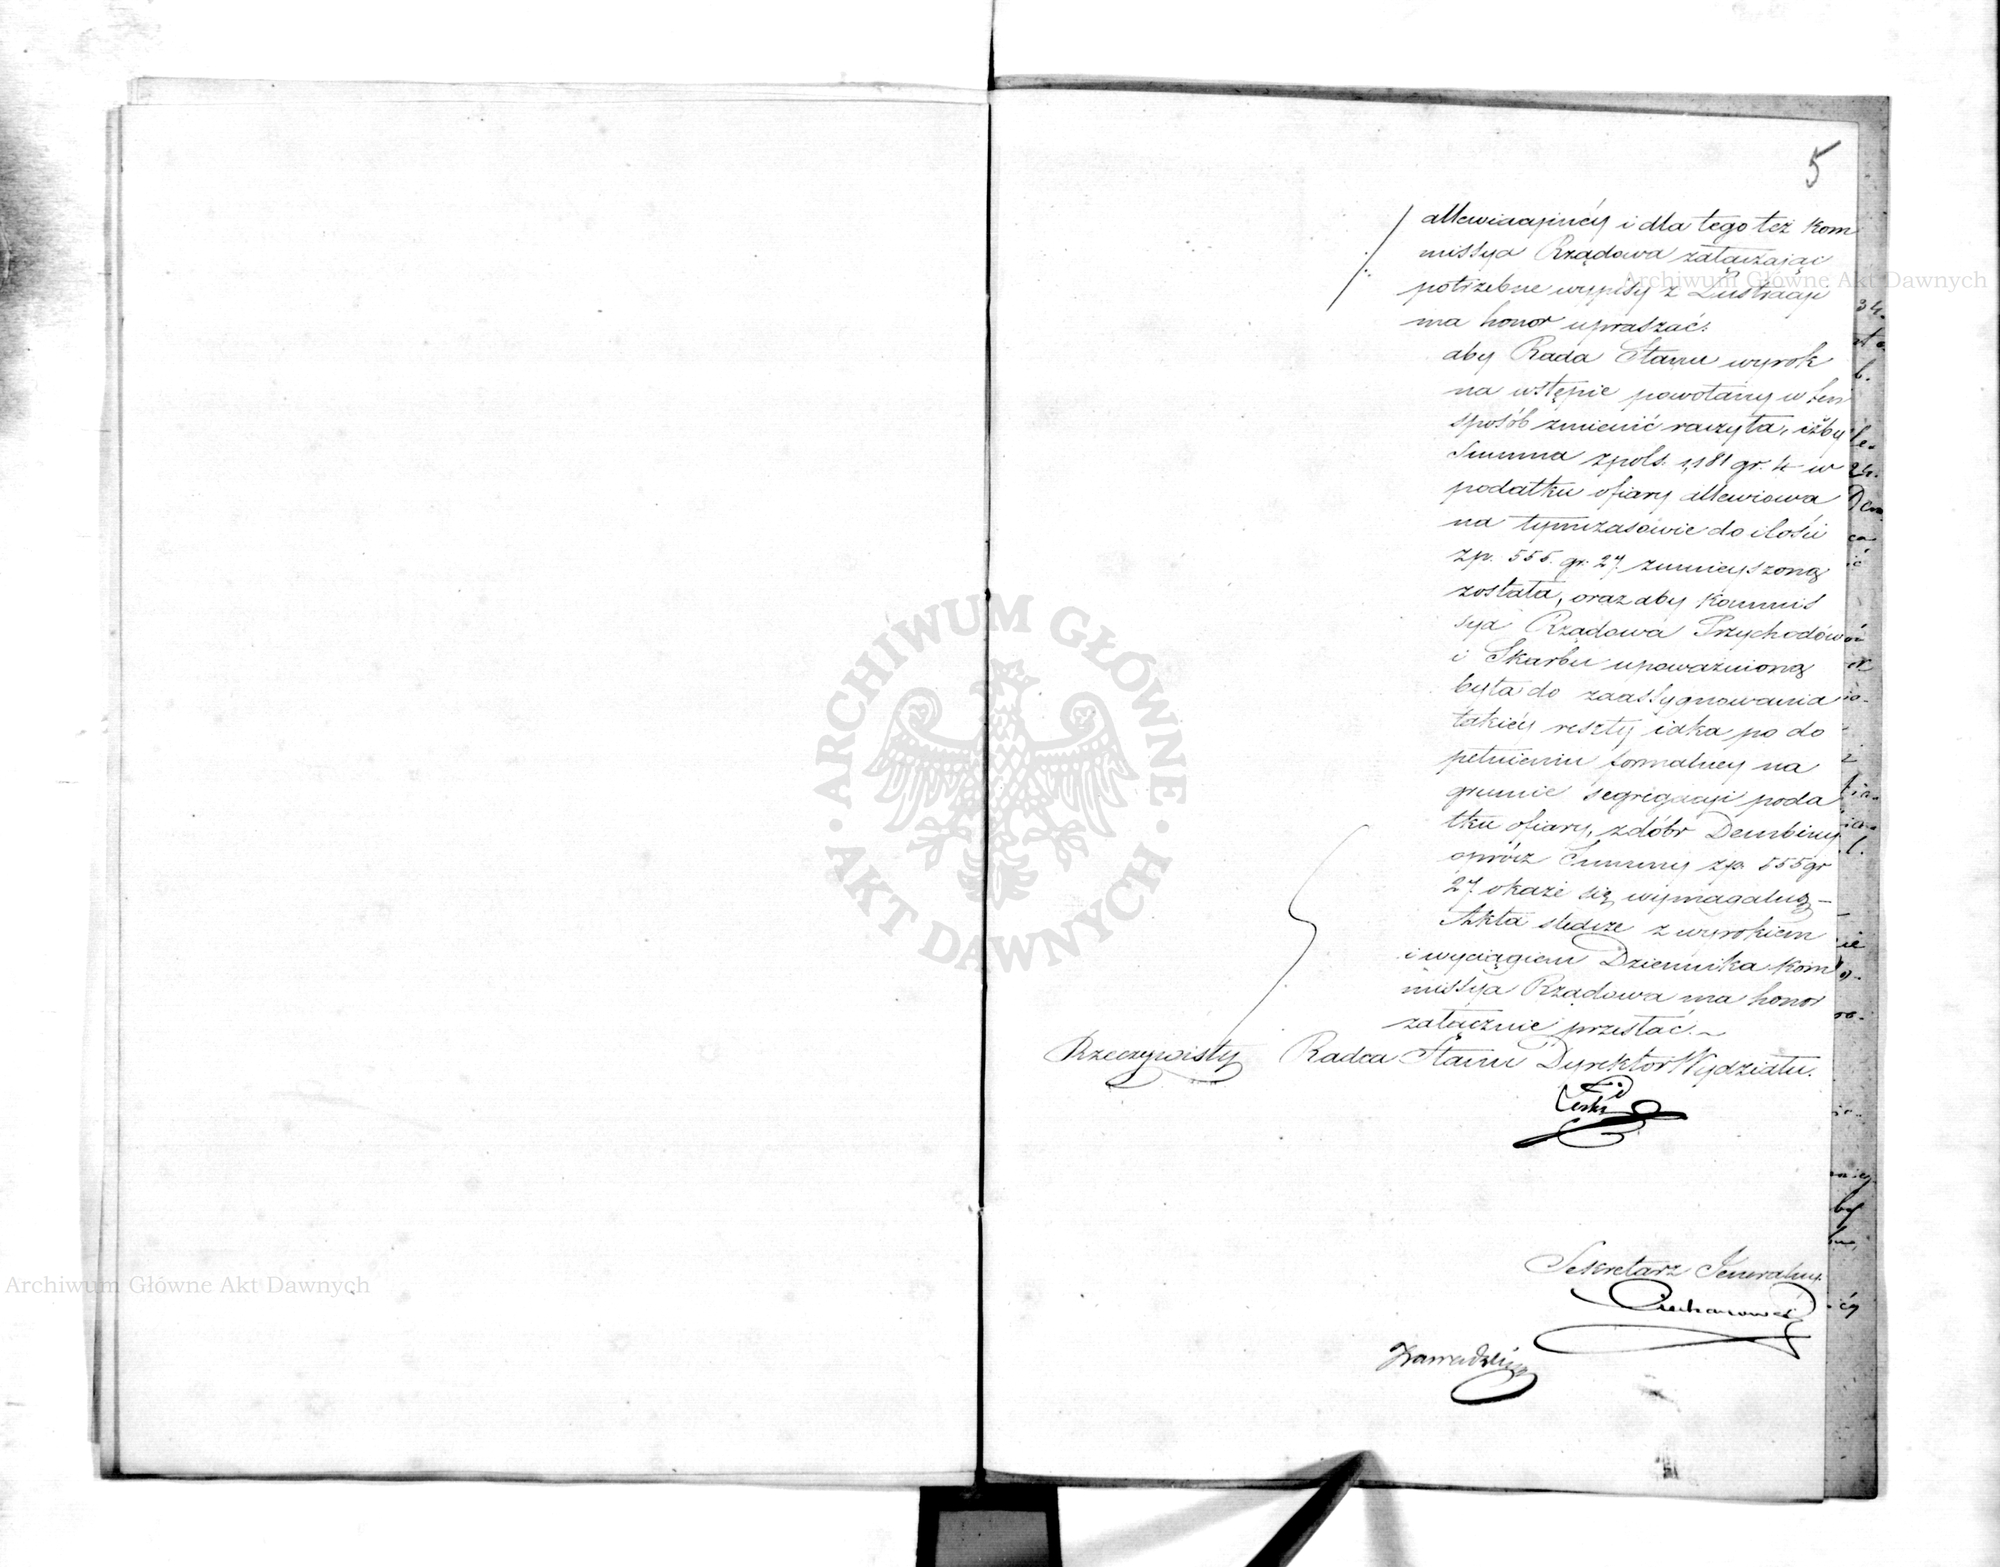 5
allewiacyinéy i dla tego też Kom
missya Rządowa załączając
potrzebne wypisy z Lustracyi
ma honor upraszać:
aby Rada Stanu wyrok
na wstępie powołany w ten
sposób zmienić raczyła, iżby
Summa zpols. 1,181 gr. 4 w
podatku ofiary allewiowa
na tymczasowie do ilości
zp. 555. gr. 27. zmnieyszoną
została, oraz aby Kommis
sya Rządowa Przychodów
i Skarbu upoważnioną
była do zaassygnowania
takiéy reszty iaka po do
pełnieniu formalney na
gruncie segregacyi poda
tku ofiary, z dóbr Dembiny
oprócz Summy zp. 555 gr
27. okaże się wymagalną –
Akta śledcze z wyrokiem
i wyciągiem Dziennika Kom
missya Rządowa ma honor
załącznie przesłać. ~
Rzeczywisty Radca Stanu Dyrektor Wydziału.
Sekretarz Jeneralny.
Ciechanowski
Archiwum Główne Akt Dawnych
Archiwum Główne Akt Dawnych
ARCHIWUM GŁÓWNE · AKT DAWNYCH ·